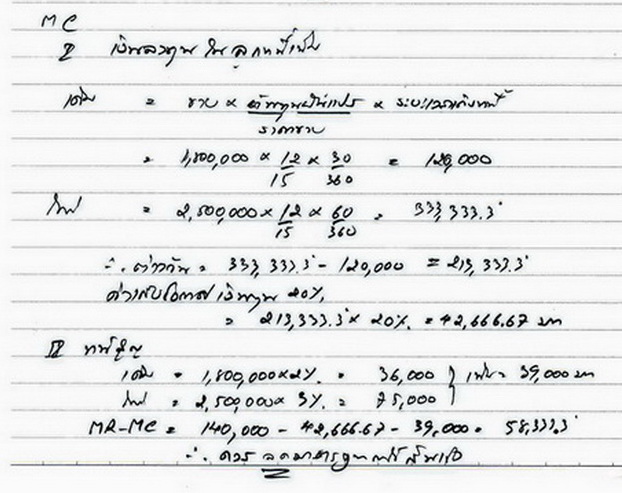 MC
I เงินลงทุนในลูกหนี้เพิ่ม
เดิม = ขาย × ต้นทุนผันแปร × ระยะเวลา
ราคาขาย
= 1,800,000 × 12 × 30 = 120,000
15 360
ใหม่ = 2,500,000 × 12 × 60 = 333,333.3
15 360
∴ ต่างกัน = 333,333.3 - 120,000 = 213,333.3
ค่าเสียโอกาส เงินทุน 20%
= 213,333.3 × 20% = 42,666.67 บาท
II หนี้สูญ
เดิม = 1,800,000 × 2% = 36,000 } เพิ่ม = 39,000 บาท
ใหม่ = 2,500,000 × 3% = 75,000
MR-MC = 140,000 - 42,666.67 - 39,000 = 58,333.3
∴ ควร ลดมาตรฐาน